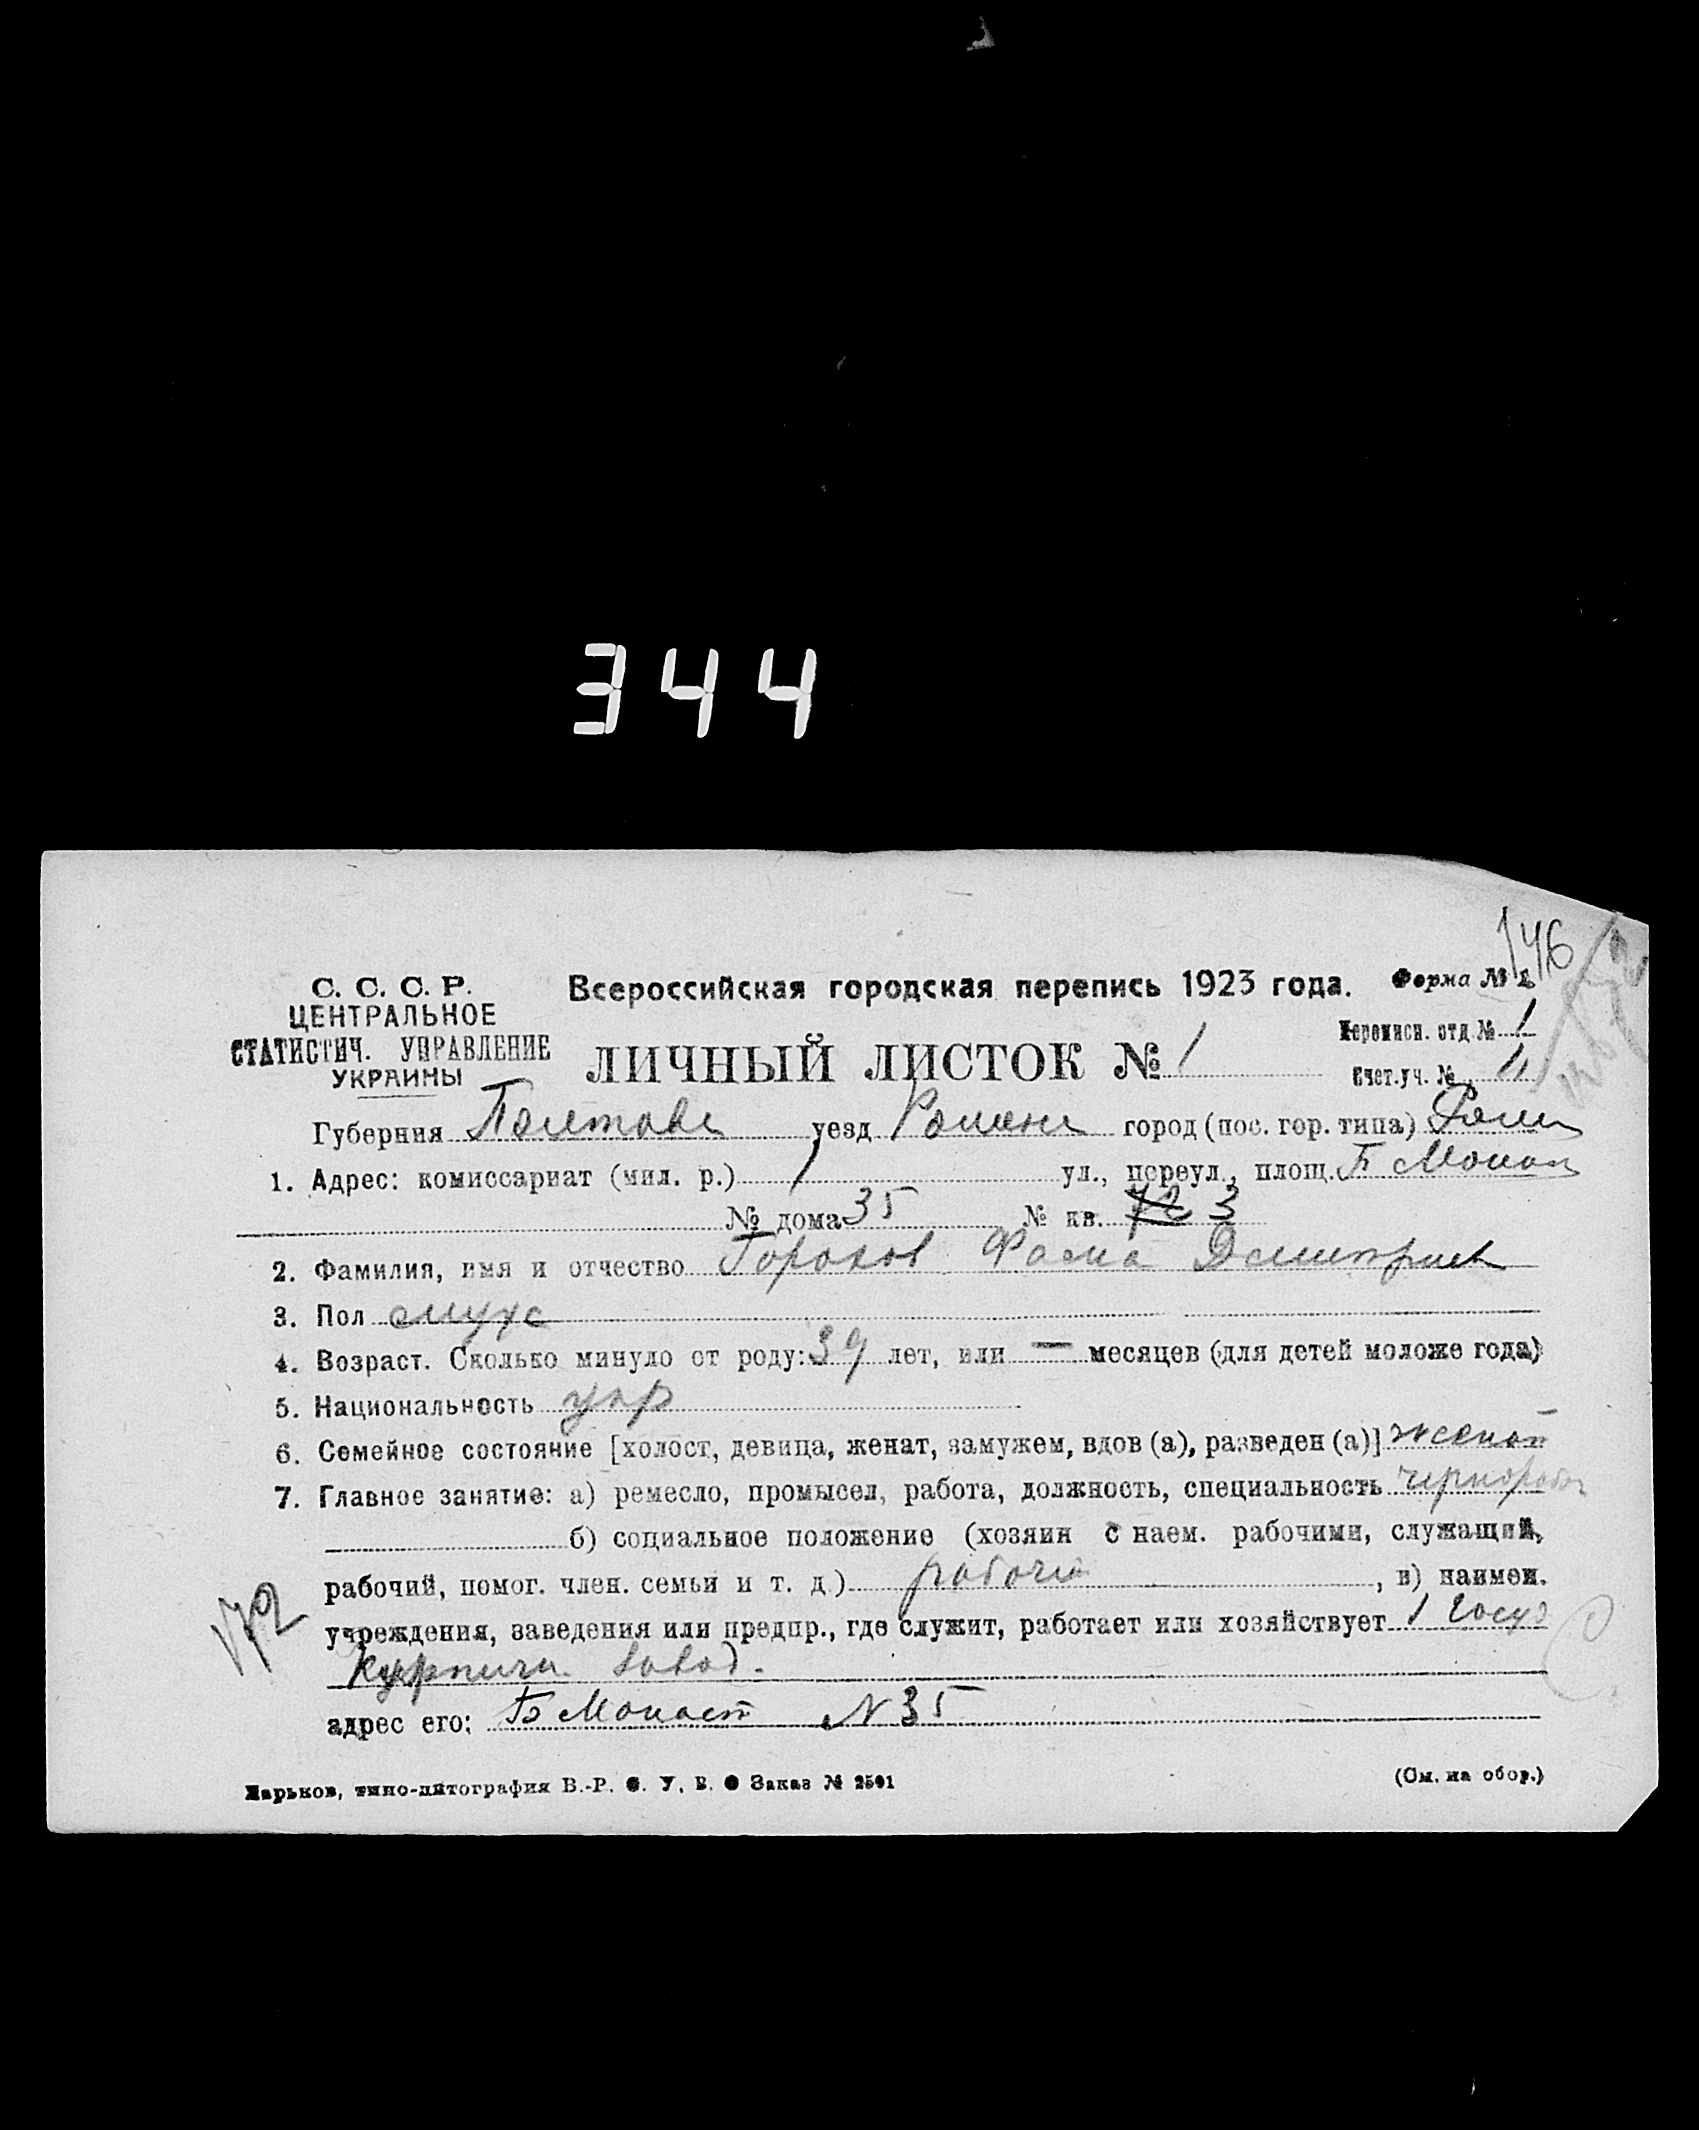 344
146
С. С. С. Р.
ЦЕНТРАЛЬНОЕ
СТАТИСТИЧ. УПРАВЛЕНИЕ
УКРАИНЫ
Всероссийская городская перепись 1923 года. Форма № 1
ЛИЧНЫЙ ЛИСТОК № 1
Переписн. отд. № 1
Счет. уч. № 11
Губерния Полтавс уезд Роменс город (пос. гор. типа) Ромн
1. Адрес: комиссариат (мил. р.) 1 ул., переул., площ. Б Монаст
№ дома 35 № кв. 3
2. Фамилия, имя и отчество Горохов Фома Дмитриев
3. Пол мужс
4. Возраст. Сколько минуло от роду: 39 лет, или — месяцев (для детей моложе года)
5. Национальность укр
6. Семейное состояние [холост, девица, женат, замужем, вдов (а), разведен (а)] женат
7. Главное занятие: а) ремесло, промысел, работа, должность, специальность чернорабоч
б) социальное положение (хозяин с наем. рабочими, служащий,
рабочий, помог. член. семьи и т. д.) рабочий, в) наимен.
учреждения, заведения или предпр., где служит, работает или хозяйствует 1 Госуд
Кирпичн. завод.
адрес его: Б Монаст N 35
172
Харьков, типо-литография В.-Р. С. У. В. Заказ № 2501
(См. на обор.)